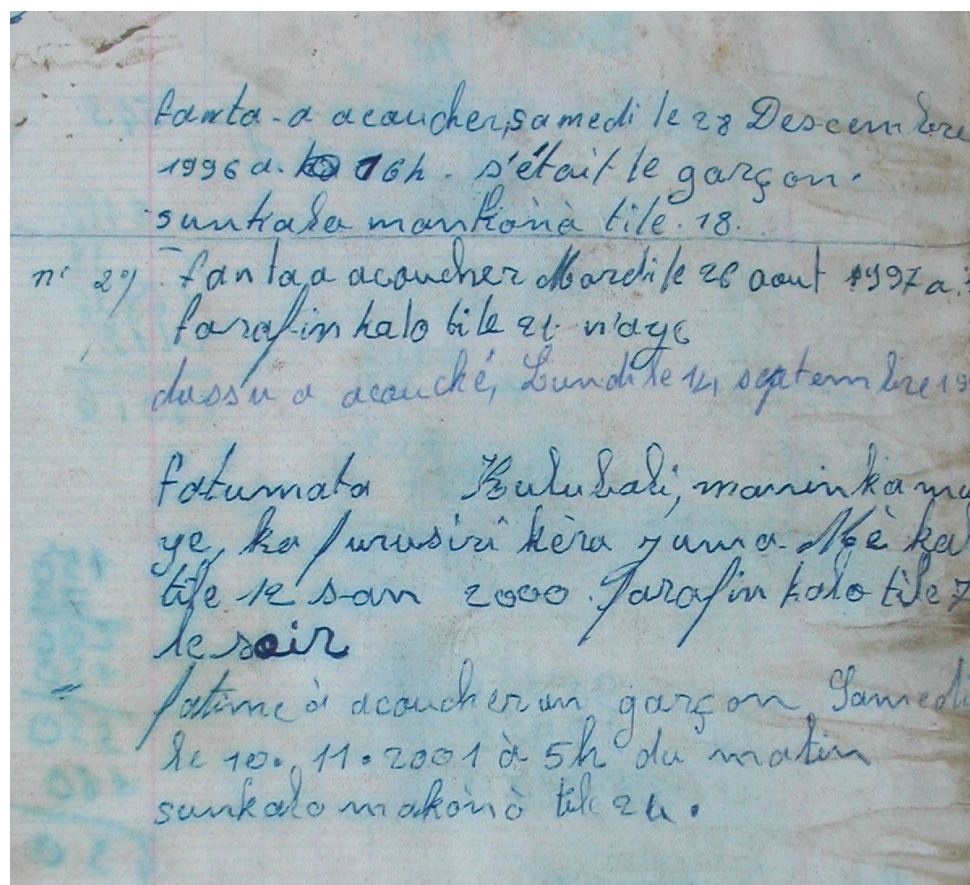 fanta-a acoucher, samedi le 28 Descembre
1996 a. 16h. s'était le garçon.
sunkalo mankònò tile. 18.
n° 29 - fanta a acoucher Mardi le 26 aout 1997 a.
farafin kalo tile 21 n'aye
dussu a acouché, Lundi le 14, septembre 19
fatumata Kulubali, maninka mu
ye, ka furusiri kèra juma. Mè kal
tile 12 san 2000. farafin kalo tile 7
le soir
" fatime à acoucher un garçon Samedi
le 10. 11. 2001 à 5h du matin
sunkalo makònò tile 24.